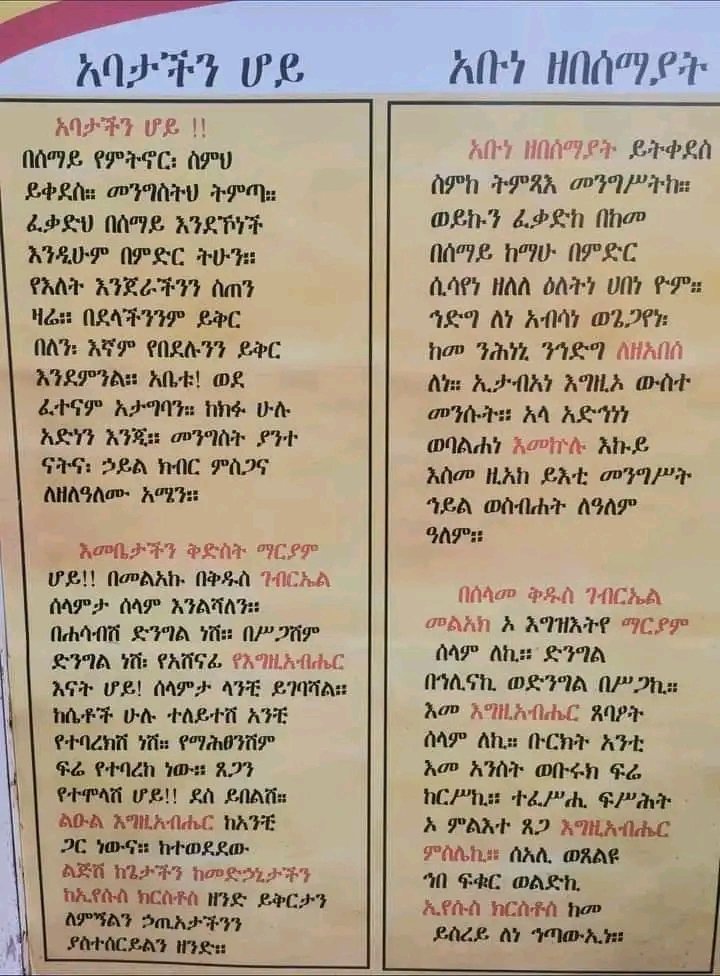 አባታችን ሆይ
አባታችን ሆይ !!
በሰማይ የምትኖር፡ ስምህ
ይቀደስ። መንግስትህ ትምጣ።
ፈቃድህ በሰማይ እንደኾነች
እንዲሁም በምድር ትሁን።
የእለት እንጀራችንን ስጠን
ዛሬ። በደላችንንም ይቅር
በለን፡ እኛም የበደሉንን ይቅር
እንደምንል። አቤቱ! ወደ
ፈተናም አታግባን። ከክፋ ሁሉ
አድነን እንጂ። መንግስት ያንተ
ናትና፡ ኃይል ክብር ምስጋና
ለዘለዓለሙ አሜን።
እመቤታችን ቅድስት ማርያም
ሆይ!! በመልአኩ በቅዱስ ገብርኤል
ሰላምታ ሰላም እንልሻለን።
በሐሳብሽ ድንግል ነሽ። በሥጋሽም
ድንግል ነሽ፡ የአሸናፊ የእግዚአብሔር
እናት ሆይ! ሰላምታ ላንቺ ይገባሻል።
ከሴቶች ሁሉ ተለይተሽ አንቺ
የተባረክሽ ነሽ። የማሕፀንሽም
ፍሬ የተባረከ ነው። ጸጋን
የተሞላሽ ሆይ!! ደስ ይበልሽ።
ልዑል እግዚአብሔር ከአንቺ
ጋር ነውና። ከተወደደው
ልጅሽ ከጌታችን ከመድኃኒታችን
ከኢየሱስ ክርስቶስ ዘንድ ይቅርታን
ለምኝልን ኃጢአታችንን
ያስተሰርይልን ዘንድ።
አቡነ ዘበሰማያት
አቡነ ዘበሰማያት ይትቀደስ
ስምከ ትምጻእ መንግሥትከ።
ወይኩን ፈቃድከ በከመ
በሰማይ ከማሁ በምድር
ሲሳየነ ዘለለ ዕለትነ ሀበነ ዮም።
ኅድግ ለነ አብሳነ ወጌጋየነ፡
ከመ ንሕነኒ ንኅድግ ለዘአበሰ
ለነ። ኢታብአነ እግዚኦ ውስተ
መንሱት። አላ አድኅነነ
ወባልሐነ እመኵሉ እኩይ
እስመ ዚአከ ይእቲ መንግሥት
ኅይል ወስብሐት ለዓለም
ዓለም።
በሰላመ ቅዱስ ገብርኤል
መልአክ ኦ እግዝእትየ ማርያም
ሰላም ለኪ። ድንግል
በኅሊናኪ ወድንግል በሥጋኪ።
እመ እግዚአብሔር ጸባዖት
ሰላም ለኪ። ቡርክት አንቲ
እመ አንስት ወቡሩክ ፍሬ
ከርሥኪ። ተፈሥሒ ፍሥሕት
ኦ ምልእተ ጸጋ እግዚአብሔር
ምስሌኪ። ሰአሊ ወጸልዪ
ኅበ ፍቁር ወልድኪ
ኢየሱስ ክርስቶስ ከመ
ይስረይ ለነ ኅጣውኢነ።